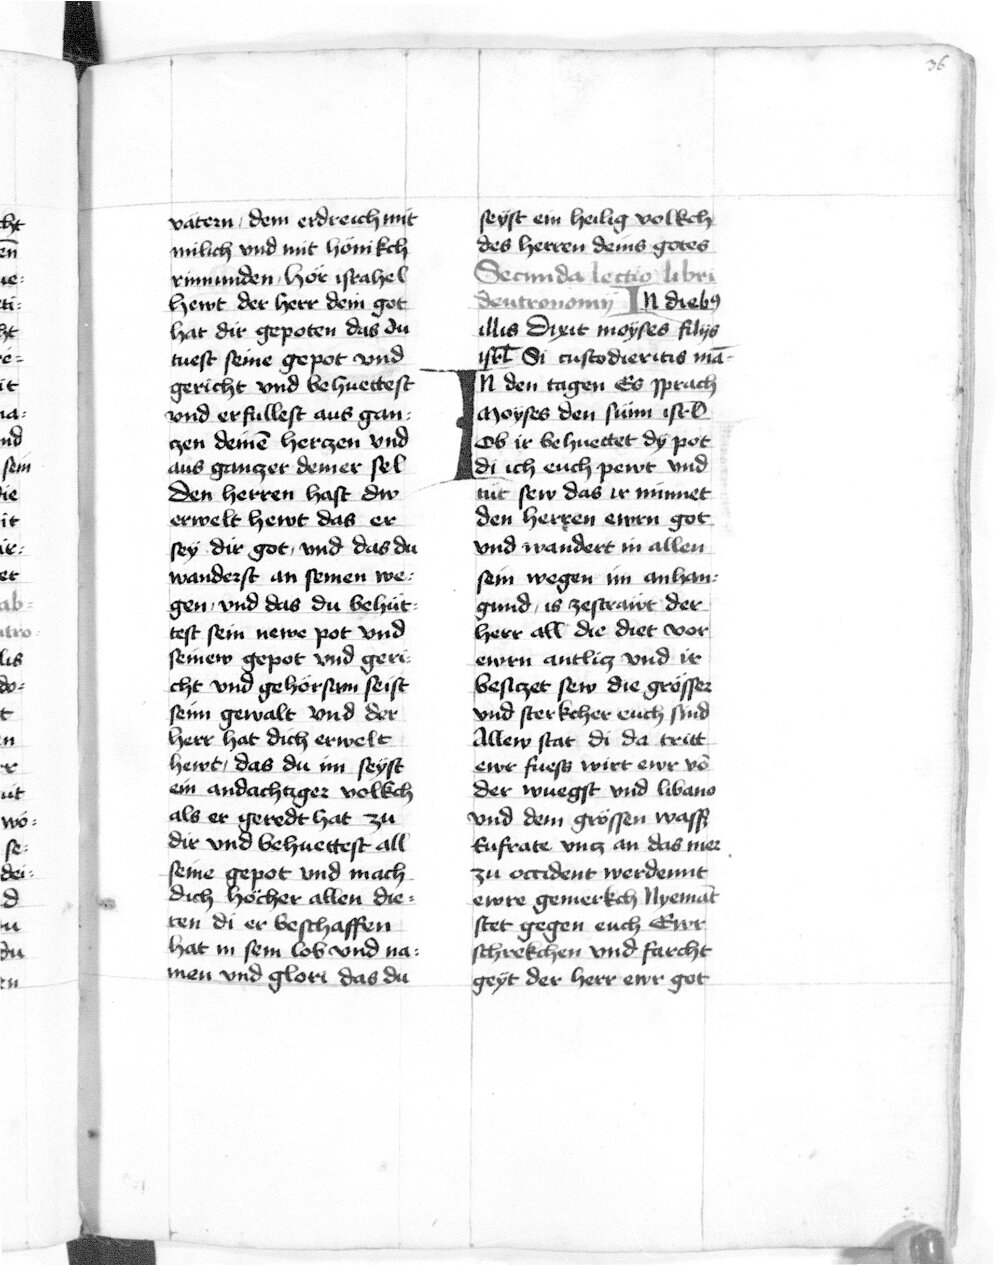 36
vätern / dem erdreich mit
milich vnd mit hönikch
rinnunden / hör israhel
hewt der herr dein got
hat dir gepoten das du
tuest seine gepot vnd
gericht vnd behuettest
vnd erfullest aus gan:
czen deinē herczen vnd
aus ganczer deiner sel
Den herren hast dw
erwelt hewt das er
sey dir got / vnd das du
wanderst an seinen we:
gen / vnd das du behüt:
test sein newe pot vnd
seinew gepot vnd geri:
cht vnd gehörsam seist
seim gewalt vnd der
herr hat dich erwelt
hewt / das du im seÿst
ein andachtiger volkch
als er geredt hat zu
dir vnd behuettest all
seine gepot vnd mach
dich höcher allen die:
ten di er beschaffen
hat in sein lob vnd na:
men vnd glori das du
seÿst ein heilig volkch
des herren deins gotes
Secunda lectio libri
deutronomij In diebꝯ
illis Dixit moÿses filijs
isrl̄ Si custodieritis mā:
IN den tagen Es sprach
Moyses den sünn isrl̄
Ob ir behuettet dÿ pot
di ich euch pewt vnd
tüt sew das ir minnet
den herren ewrn got
vnd wandert in allen
sein wegen im anhan:
gund / is zestraẅt der
herr all die diet vor
ewrn antlicz vnd ir
besiczet sew die grösser
vnd sterkcher euch sind
Allew stat di da tritt
ewr fuess wirt ewr vō
der wuegst vnd libano
vnd dem grössen wasser
Eufrate vncz an das mer
zu occident werdennt
ewre gemerkch Nyemāt
stet gegen euch Ewr
schrekchen vnd farcht
geÿt der herr ewr got